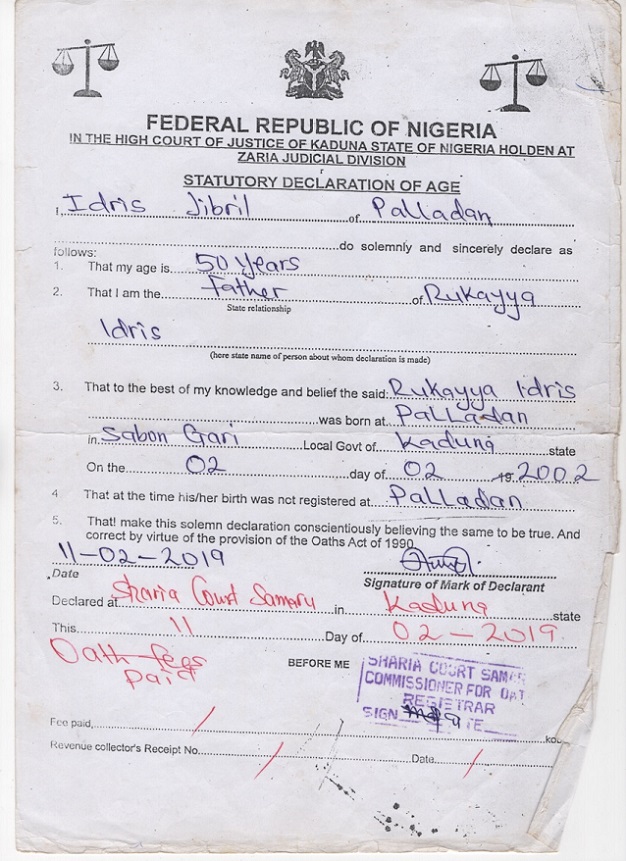 FEDERAL REPUBLIC OF NIGERIA
IN THE HIGH COURT OF JUSTICE OF KADUNA STATE OF NIGERIA HOLDEN AT
ZARIA JUDICIAL DIVISION
STATUTORY DECLARATION OF AGE
I, Idris Jibril of Palladan
do solemnly and sincerely declare as
follows:
1. That my age is 50 Years
2. That I am the Father of Rukayya
State relationship
Idris
(here state name of person about whom declaration is made)
3. That to the best of my knowledge and belief the said: Rukayya Idris
was born at Palladan
in Sabon Gari Local Govt of Kaduna state
On the 02 day of 02 19 2002
4 That at the time his/her birth was not registered at Palladan
5. That! make this solemn declaration conscientiously believing the same to be true. And
correct by virtue of the provision of the Oaths Act of 1990
11-02-2019
Date
Signature of Mark of Declarant
Declared at Sharia Court Samaru in Kaduna state
This 11 Day of 02-2019
Oath fees
paid
BEFORE ME
SHARIA COURT
COMMISSIONER FOR
REGISTRAR
SIGN
Fee paid,
Revenue collector's Receipt No. Date